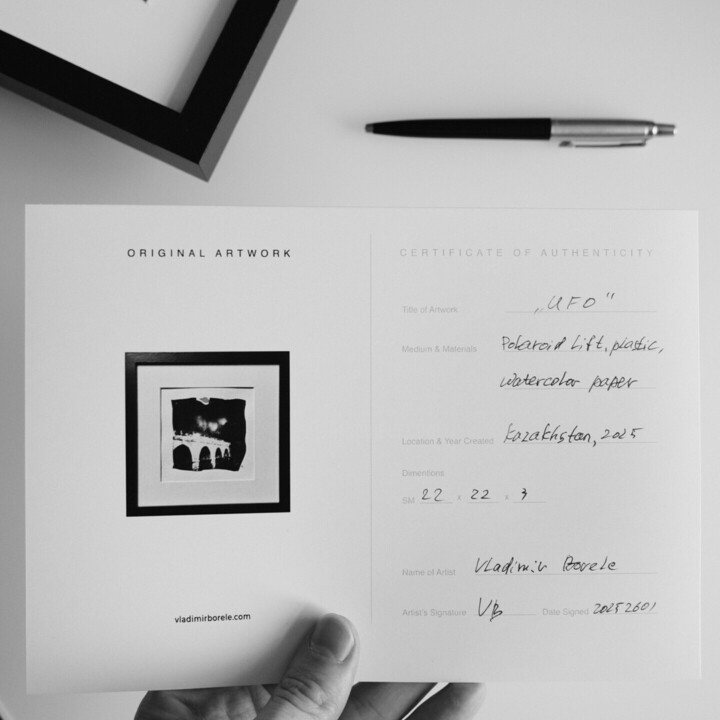 ORIGINAL ARTWORK
vladimirborele.com
CERTIFICATE OF AUTHENTICITY
Title of Artwork „UFO"
Medium & Materials Polaroid Lift, plastic,
watercolor paper
Location & Year Created Kazakhstan, 2025
Dimentions
SM 22 x 22 x 3
Name of Artist Vladimir Borele
Artist's Signature VB Date Signed 20252601